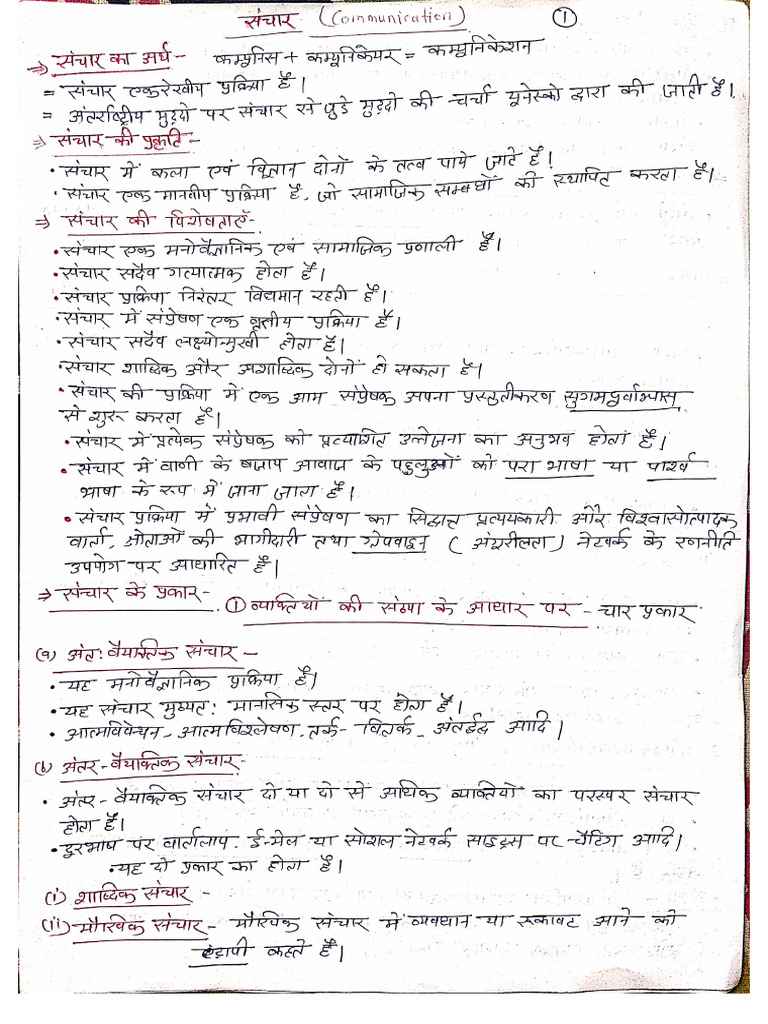 संचार (Communication) ①
⇒ संचार का अर्थ - कम्यूनिस + कम्यूनिकेयर = कम्यूनिकेशन
= संचार एकरेखीय प्रक्रिया है।
= अंतर्राष्ट्रीय मुद्दो पर संचार से जुडे मुद्दो की चर्चा यूनेस्को द्वारा की जाती है।
⇒ संचार की प्रकृति -
• संचार में कला एवं विज्ञान दोनों के तत्व पाये जाते है।
• संचार एक मानवीय प्रक्रिया है, जो सामाजिक सम्बधों को स्थापित करता है।
⇒ संचार की विशेषताएँ -
• संचार एक मनोवैज्ञानिक एवं सामाजिक प्रणाली है।
• संचार सदैव गत्यात्मक होता है।
• संचार प्रक्रिया निरंतर विद्यमान रहती है।
• संचार में संप्रेषण एक वृत्तीय प्रक्रिया है।
• संचार सदैव लक्ष्योन्मुखी होता है।
• संचार शाब्दिक और अशाब्दिक दोनों हो सकता है।
• संचार की प्रक्रिया में एक आम संप्रेषक अपना प्रस्तुतीकरण सुगमपूर्वाभ्यास
से शुरू करता है।
• संचार में प्रत्येक संप्रेषक को प्रत्याशित उत्तेजना का अनुभव होता है।
• संचार में वाणी के बजाय आवाज के पहुलुओं को परा भाषा या पार्श्व
भाषा के रूप में जाना जाता है।
• संचार प्रक्रिया में प्रभावी संप्रेषण का सिद्धान्त प्रत्ययकारी और विश्वासोत्पादक
वार्ता, श्रोताओं की भागीदारी तथा ग्रेपवाइन (अंगूरीलता) नेटवर्क के रणनीति
उपयोग पर आधारित है।
⇒ संचार के प्रकार - ① व्यक्तियों की संख्या के आधार पर - चार प्रकार
(a) अंत: वैयक्तिक संचार -
• यह मनोवैज्ञानिक प्रक्रिया है।
• यह संचार मुख्यत: मानसिक स्तर पर होता है।
• आत्मविवेचन - आत्मविश्लेषण, तर्क - वितर्क, अंतर्द्वंद्व आदि।
(b) अंतर - वैयक्तिक संचार -
• अंतर - वैयक्तिक संचार दो या दो से अधिक व्यक्तियो का परस्पर संचार
होता है।
• दूरभाष पर वार्तालाप, ई-मेल या सोशल नेटवर्क साइट्स पर चैटिंग आदि।
• यह दो प्रकार का होता है।
(i) शाब्दिक संचार -
(ii) मौखिक संचार - मौखिक संचार में व्यवधान या रूकावट आने को
कहते है।